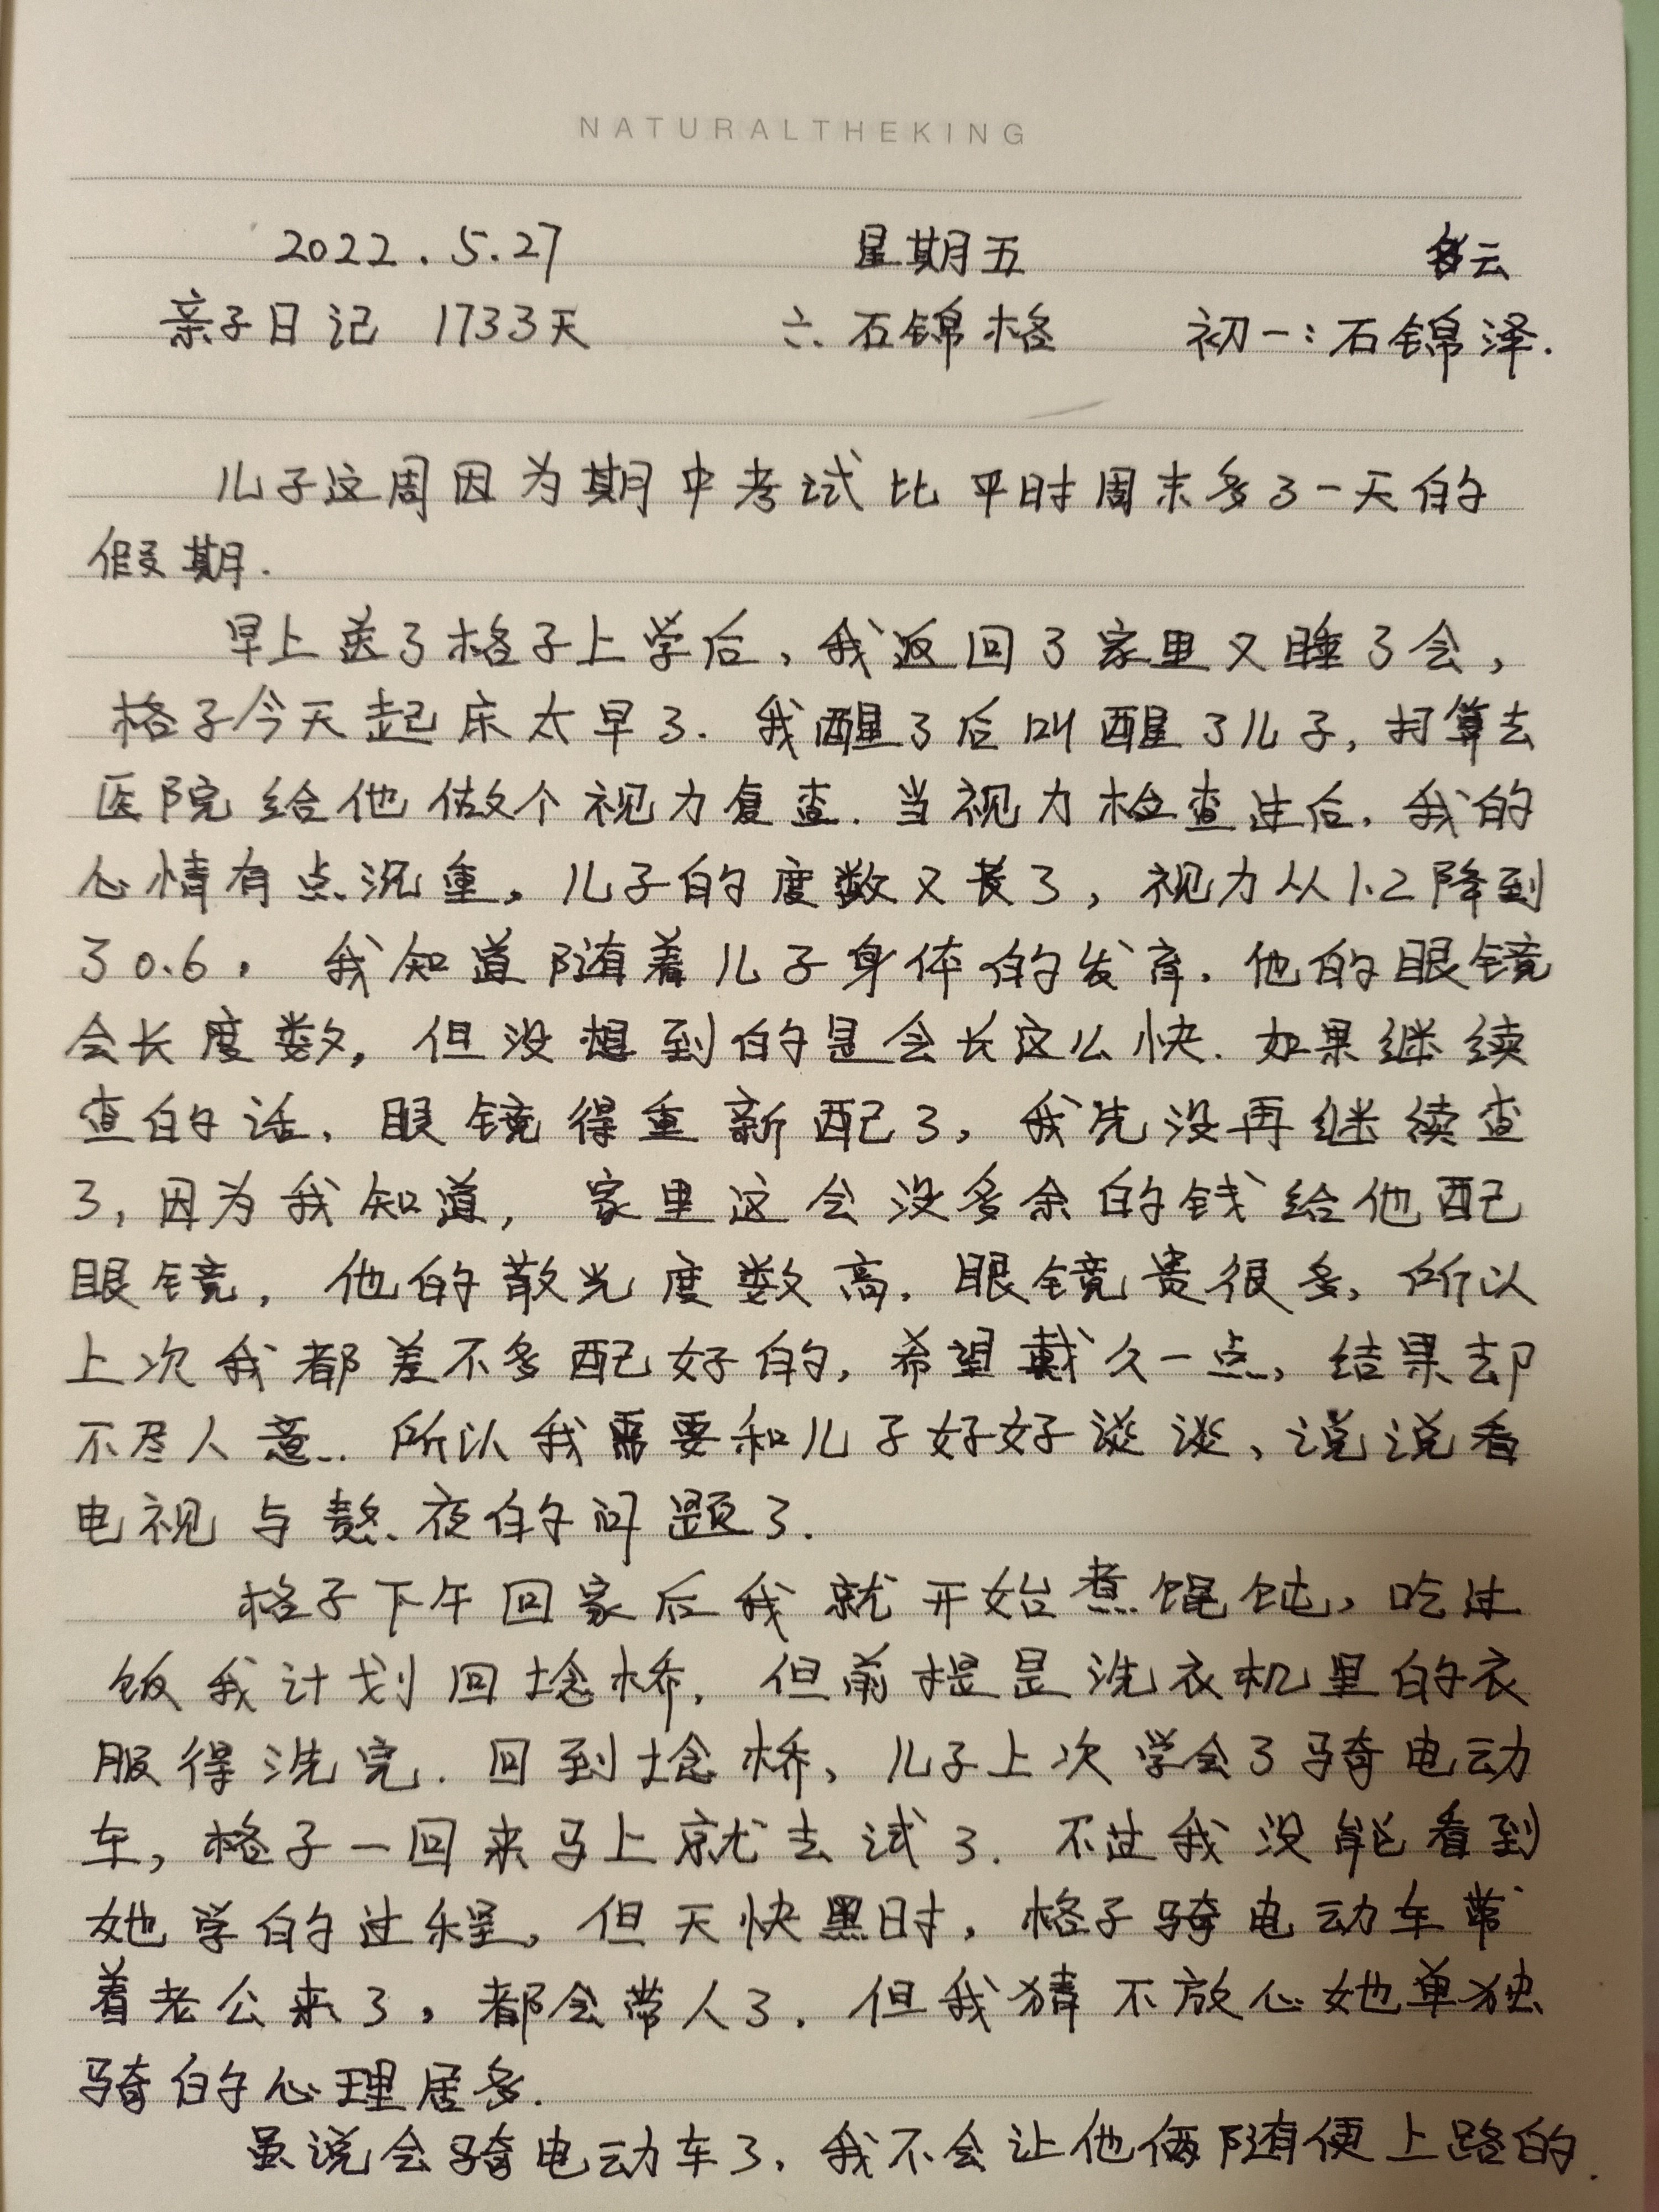 NATURALTHEKING
2022.5.27 星期五 多云
亲子日记 1733天 六:石锦格 初一:石锦泽.
儿子这周因为期中考试比平时周末多了一天的
假期.
早上送了格子上学后,我返回了家里又睡了会,
格子今天起床太早了.我醒了后叫醒了儿子,打算去
医院给他做个视力复查.当视力检查过后,我的
心情有点沉重,儿子的度数又长了,视力从1.2降到
了0.6,我知道随着儿子身体的发育,他的眼镜
会长度数,但没想到的是会长这么快.如果继续
查的话,眼镜得重新配了,我先没再继续查
了,因为我知道,家里这会没多余的钱给他配
眼镜,他的散光度数高,眼镜贵很多,所以
上次我都差不多配好的,希望戴久一点,结果却
不尽人意...所以我需要和儿子好好谈谈,说说看
电视与熬夜的问题了.
格子下午回家后我就开始煮馄饨,吃过
饭我计划回埝桥,但前提是洗衣机里的衣
服得洗完.回到埝桥,儿子上次学会了骑电动
车,格子一回来马上就去试了.不过我没能看到
她学的过程,但天快黑时,格子骑电动车带
着老公来了,都会带人了.但我猜不放心她单独
骑的心理居多.
虽说会骑电动车了,我不会让他俩随便上路的.